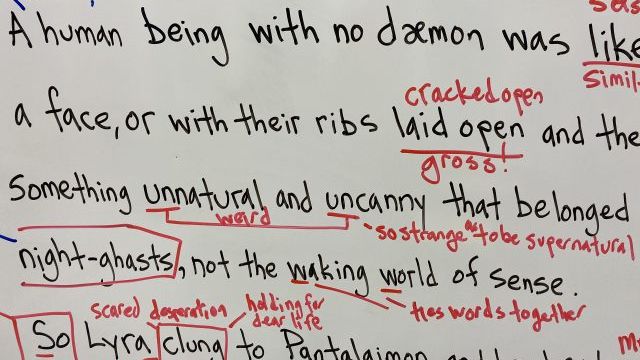 A human being with no dæmon was like
cracked open
a face, or with their ribs laid open and the
gross!
Something unnatural and uncanny that belonged
weird
so strange as to be supernatural
night-ghasts, not the waking world of sense.
scared desperation holding for dear life ties words together
So Lyra clung to Pantalaimon